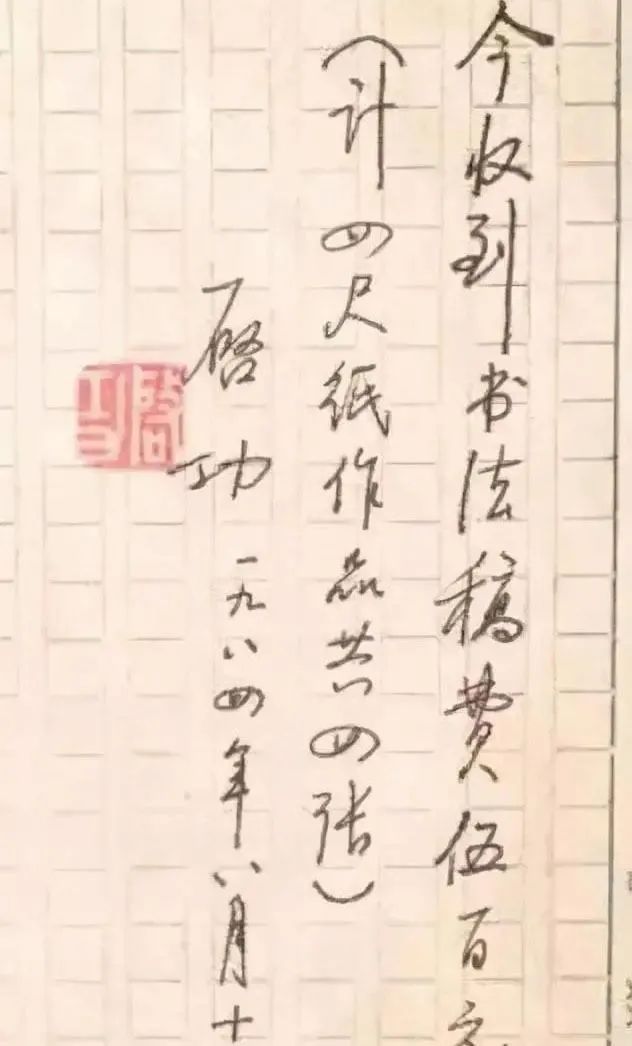 今收到书法稿费伍百元
（计四尺纸作品共四张）
启功 一九八四年八月十
启功